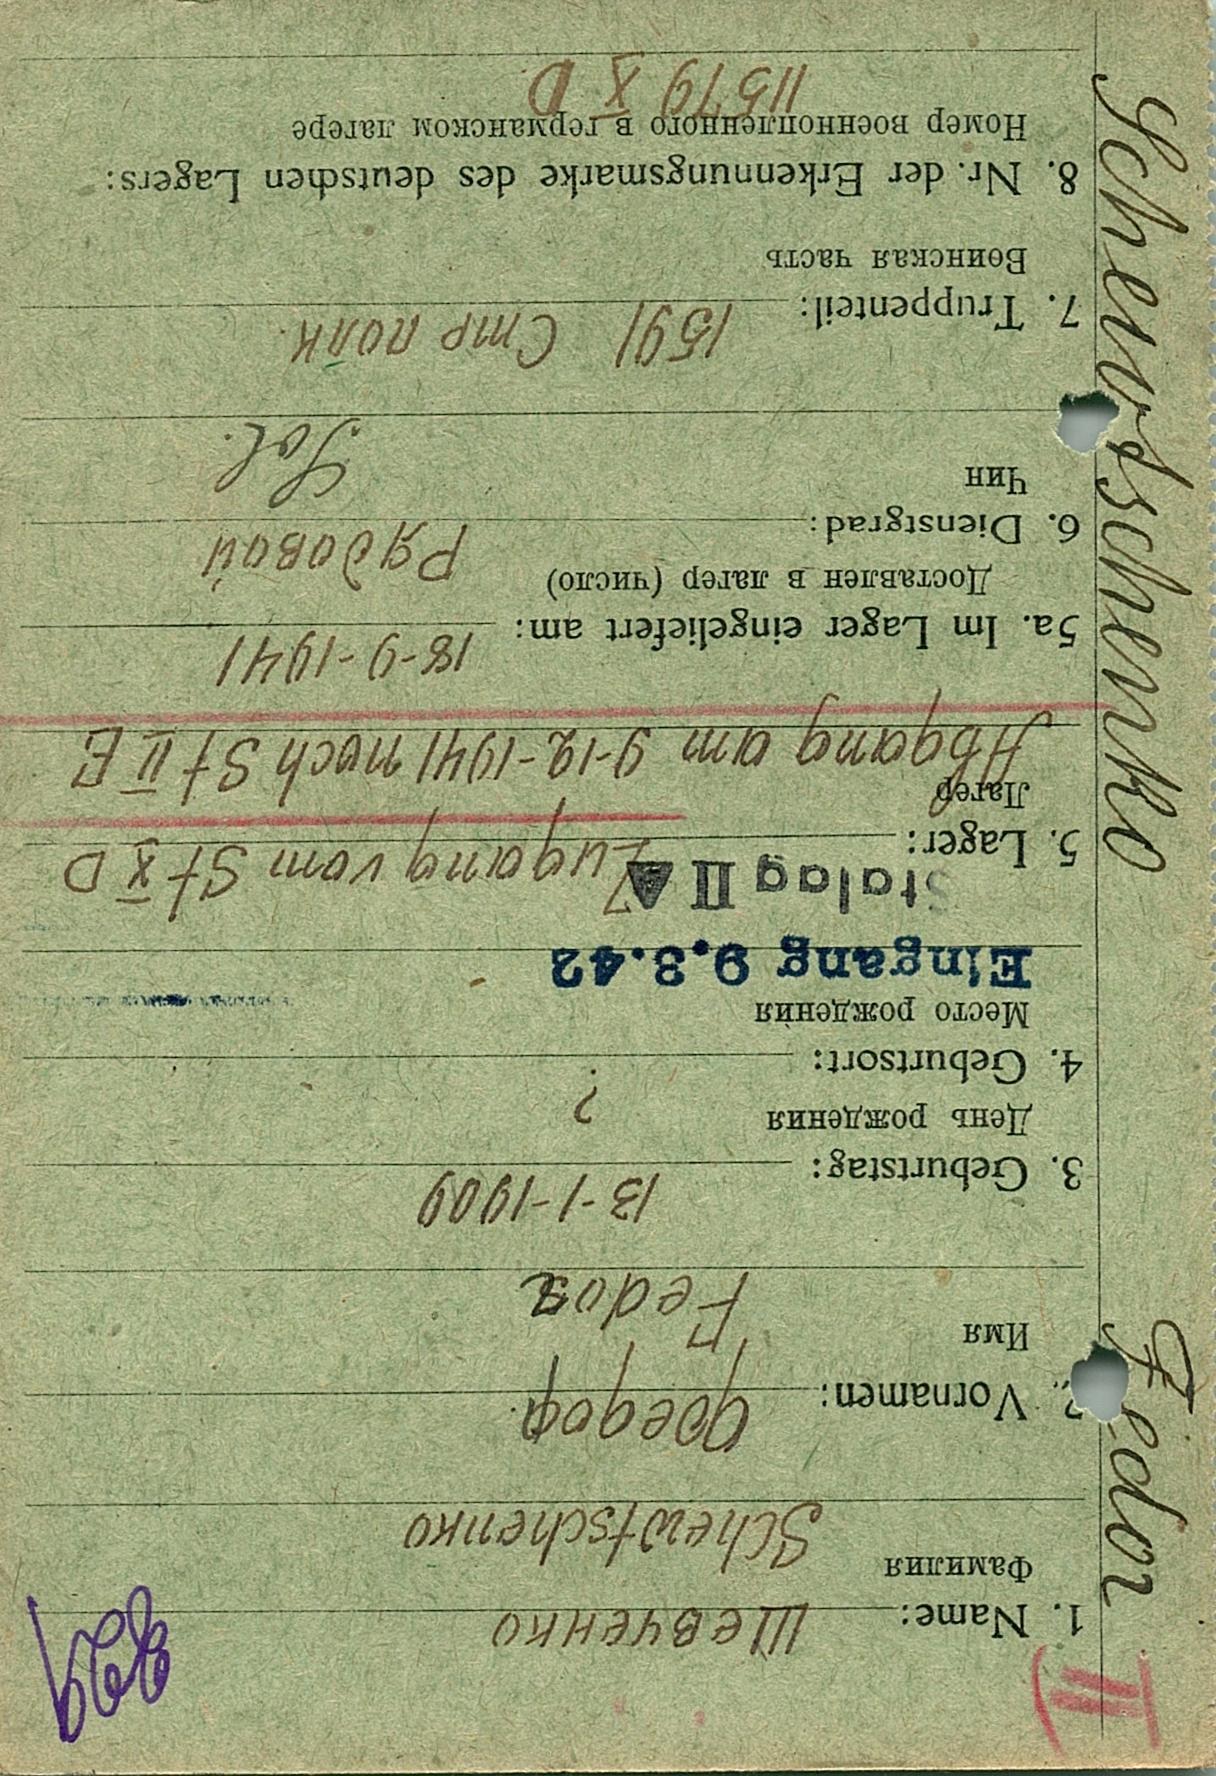 III)
829
1. Name: Шевченко
Фамилия
Schewtschenko
2. Vornamen: Федор
Имя
Fedor
3. Geburtstag: 13-1-1909
День рождения
4. Geburtsort: ?
Место рождения
Eingang 9.3.42
Stalag II A
5. Lager: Zugang vom St X D
Лагер
Abgang am 9-12-1941 nach St II E
5a. Im Lager eingeliefert am: 18-9-1941
Доставлен в лагер (число)
6. Dienstgrad: Рядовой
Чин
Sol.
7. Truppenteil: 1591 Стр полк.
Воинская часть
8. Nr. der Erkennungsmarke des deutschen Lagers:
Номер военнопленного в германском лагере
11579 X D
Schewtschenko Fedor